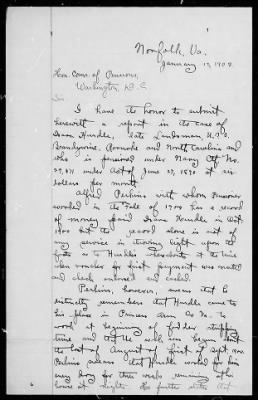 Norfolk, Va.
January 17, 1902.
Hon. Com. of Pensions,
Washington, D.C.
Sir:
I have the honor to submit
herewith a report in the case of
Isaac Hurdle, late Landsman U.S.S.
Brandywine, Roanoke and North Carolina and
who is pensioned under Navy Ctf No.
under Act of June 27, 1890 at six
dollars per month
Alfred Perkins with whom Pensioner
worked in the Fall of 1900 has a record
of money paid Isaac Hurdle in Oct
1900 but the record alone is not of
any service in throwing light upon the
facts as to Hurdle's whereabouts at the time
when voucher for first payment was made
and check endorsed and cashed.
Perkins, however, swears that he
distinctly remembers that Hurdle came to
his place in Princess Ann Co. Va. to
work at beginning of fodder stripping
time and that he will say begun
the last of August or first of Sept 1900.
Perkins swears that Hurdle worked for him
every day for three weeks remaining at his
house at nights. He further states that